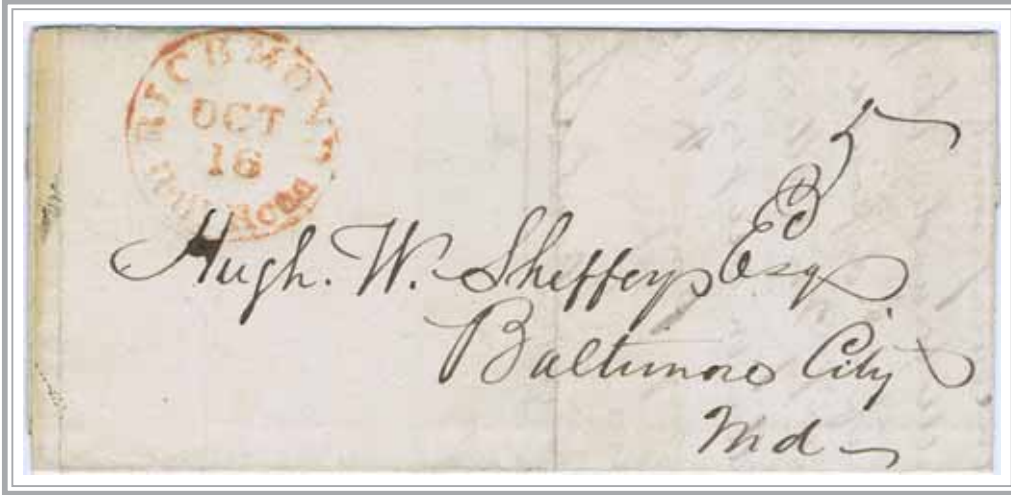 RICHMOND
OCT
16
Rail Road
5
Hugh. W. Sheffey Esq
Baltimore City
Md